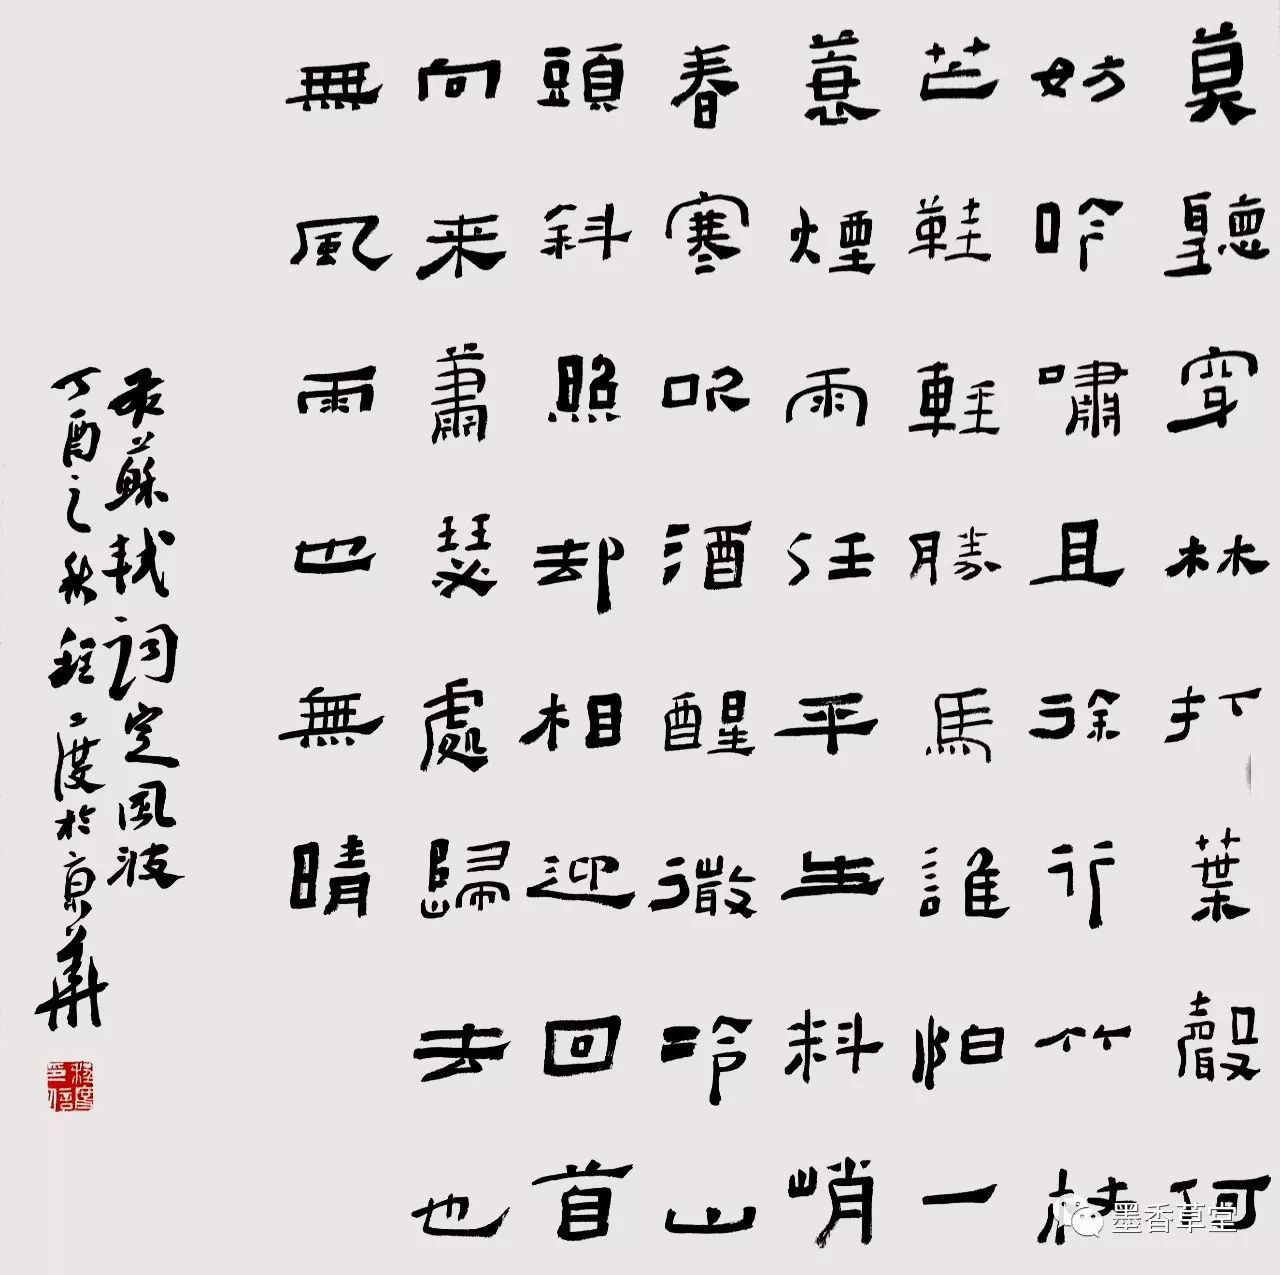 莫聽穿林打葉聲何
妨吟嘯且徐行竹杖
芒鞋輕勝馬誰怕一
蓑煙雨任平生料峭
春寒吹酒醒微冷山
頭斜照却相迎回首
向来蕭瑟處歸去也
無風雨也無晴
蘇軾詞定風波
丁酉之秋程度於京華
程度印信
墨香草堂